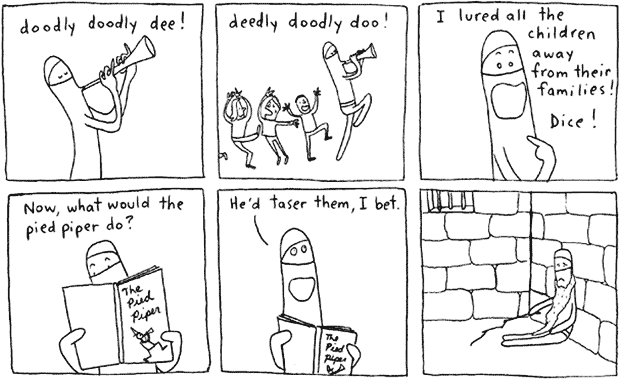 doodly doodly dee!
deedly doodly doo!
I lured all the
children
away
from their
families!
Dice!
Now, what would the
pied piper do?
The
Pied
Piper
He'd taser them, I bet.
The
Pied
Piper